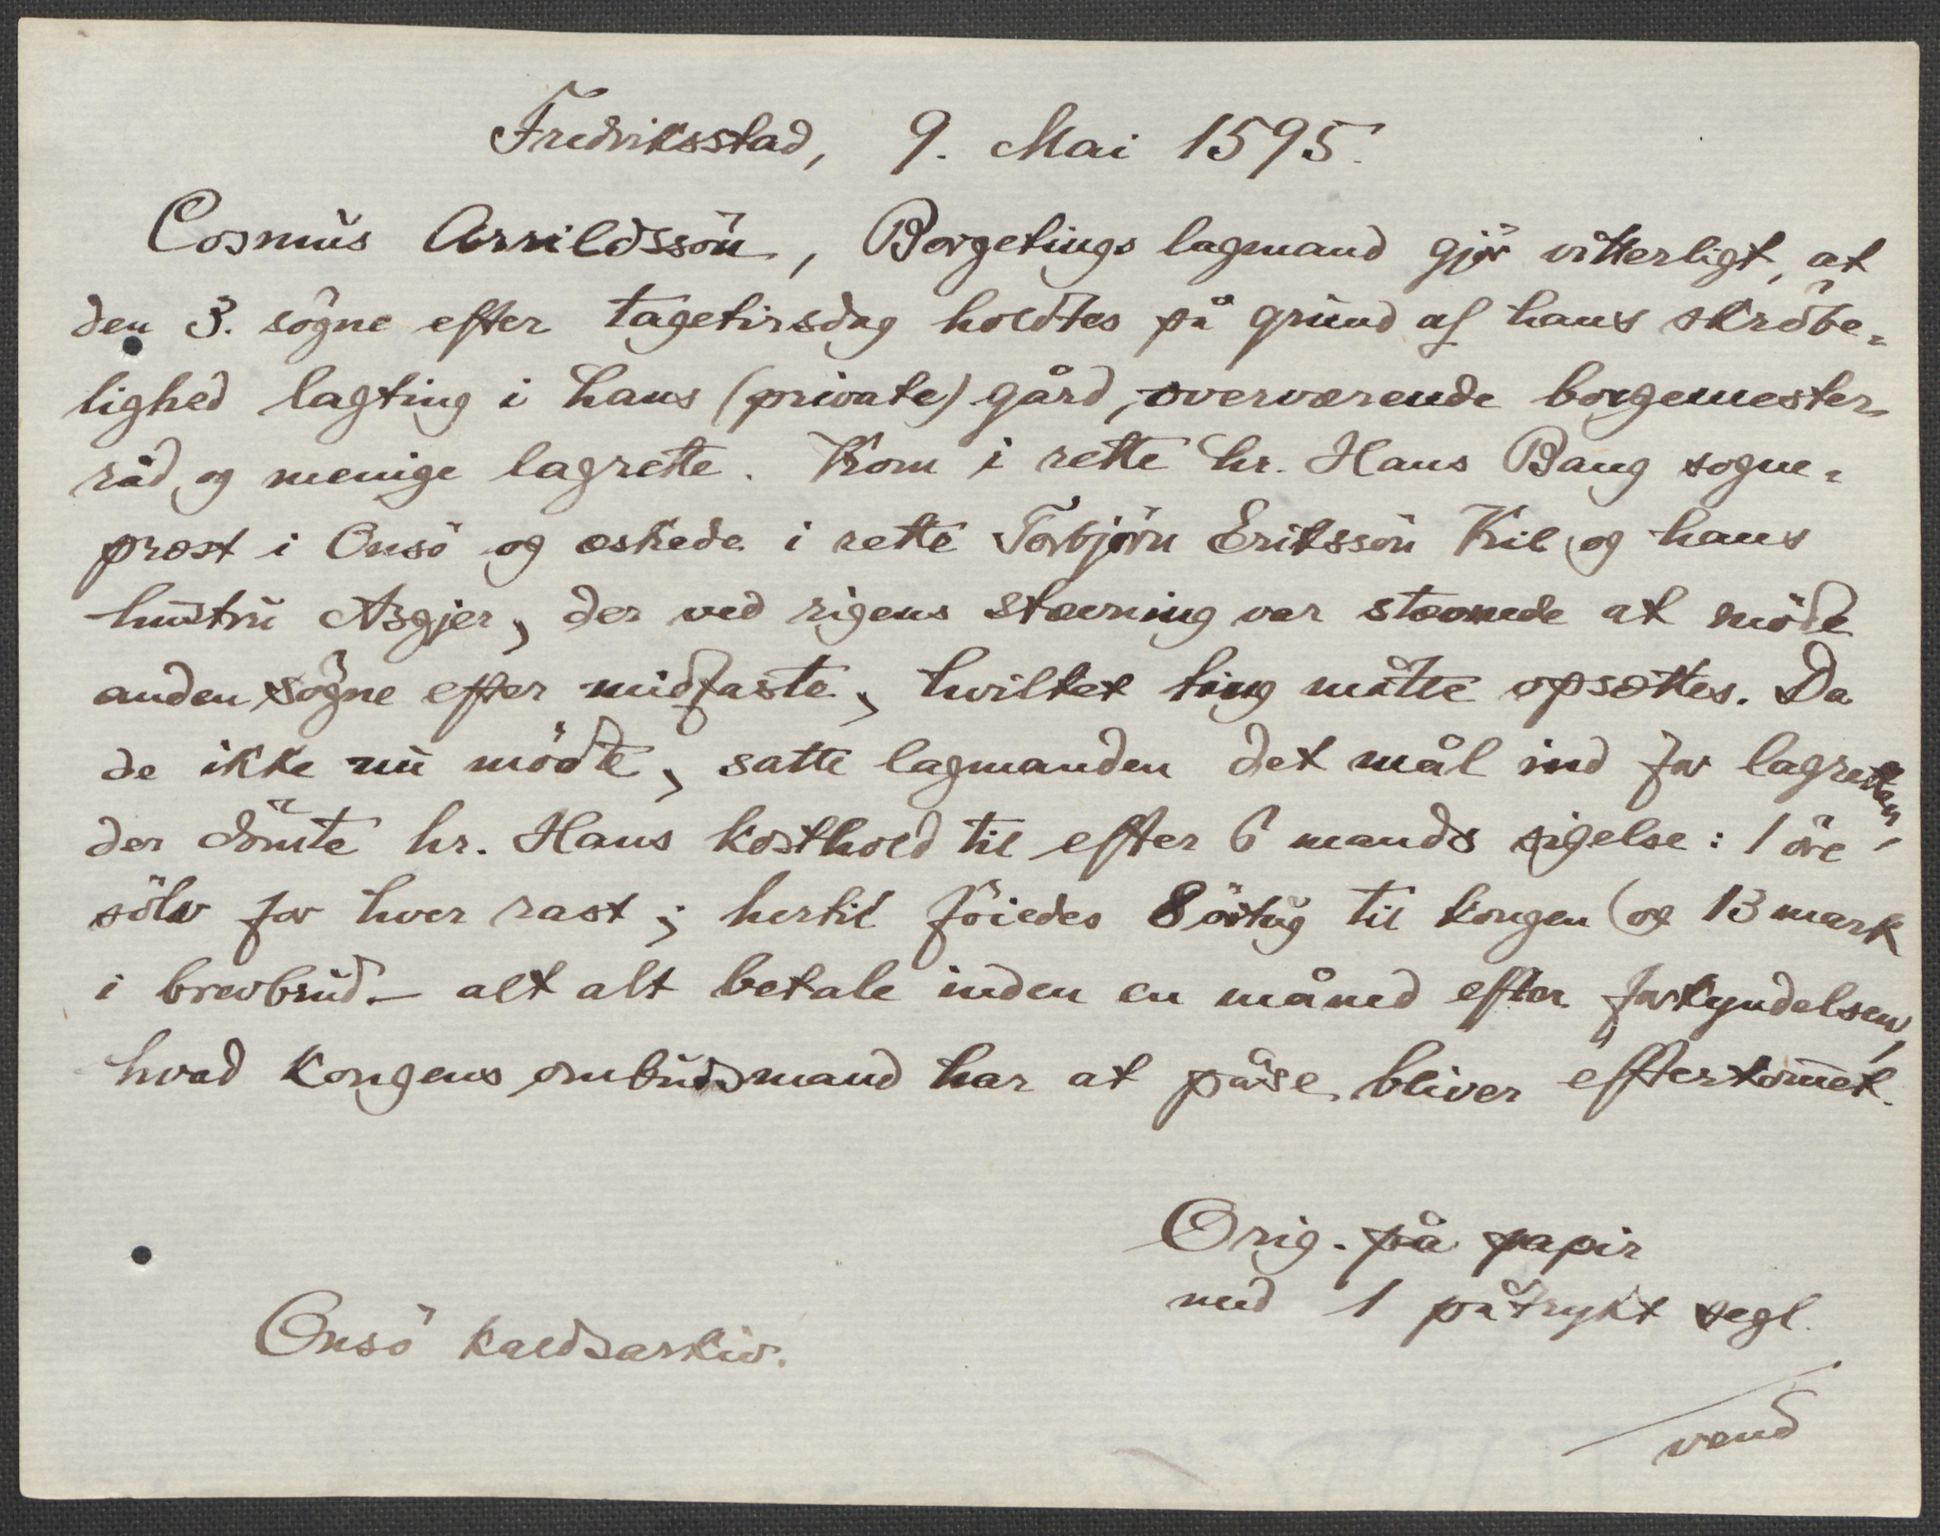 Fredriksstad, 9. Mai 1595.
Cosmus Arrildssön, Borgetings lagmand gjör vitterligt, at
den 3. sögne efter tagetirsdag holdtes på grund af hans skröbe-
lighed lagting i hans (private) gård, overværende borgemester,
råd og menige lagrette. Kom i rette hr. Hans Bang sogne-
prest i Onsö og eskede i rette Torbjörn Erikssön Kil og hans
hustru Asgjer, der ved rigens stævning var stævnede at möde
anden sögne efter midfaste, hvilket ting måtte opsættes. Da
de ikke nu mödte, satte lagmanden det mål ind for lagretten,
der dömte hr. Hans kosthold til efter 6 mands sigelse: 1 öre
sölv for hver rast; hertil föiedes 8 örtug til kongen og 13 mark
i brevbrud. – alt alt betale inden en måned efter forkyndelsen,
hvad kongens ombudsmand har at påse bliver efterkom̅et.
Orig. på papir
med 1 påtrykt segl.
Onsö kaldsarkiv.
vend